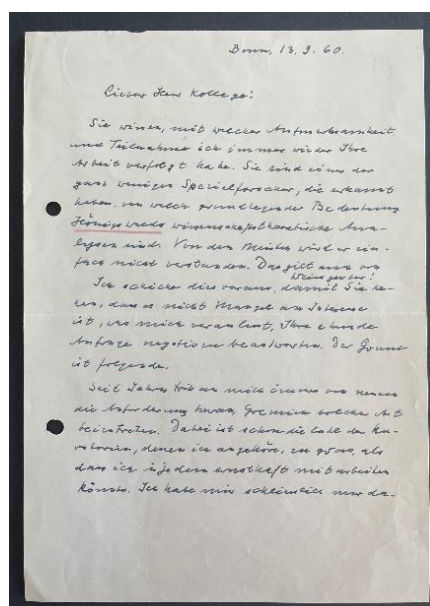 Bonn, 13. 9. 60.
Lieber Herr Kollege!
Sie wissen, mit welcher Aufmerksamkeit
und Teilnahme ich immer wieder Ihre
Arbeit verfolgt habe. Sie sind einer der
ganz wenigen Spezialforscher, die erkannt
haben, von welch grundlegender Bedeutung
Hönigswalds wissenschaftstheoretische Ana-
lysen sind. Von den Meisten wird er ein-
fach nicht verstanden. Das gilt von
Weingartner!
Ich schicke dies voraus, damit Sie se-
hen, dass es nicht Mangel an Interesse
ist, was mich veranlasst, Ihre ehrende
Anfrage negativ zu beantworten. Der Grund
ist folgender.
Seit Jahren tritt an mich immer von neuem
die Anforderung heran, Gremien solcher Art
beizutreten. Dabei ist schon die Zahl der Ku-
ratorien, denen ich angehöre, zu gross, als
dass ich in jedem ernsthaft mitarbeiten
könnte. Ich habe mir schliesslich nur da-